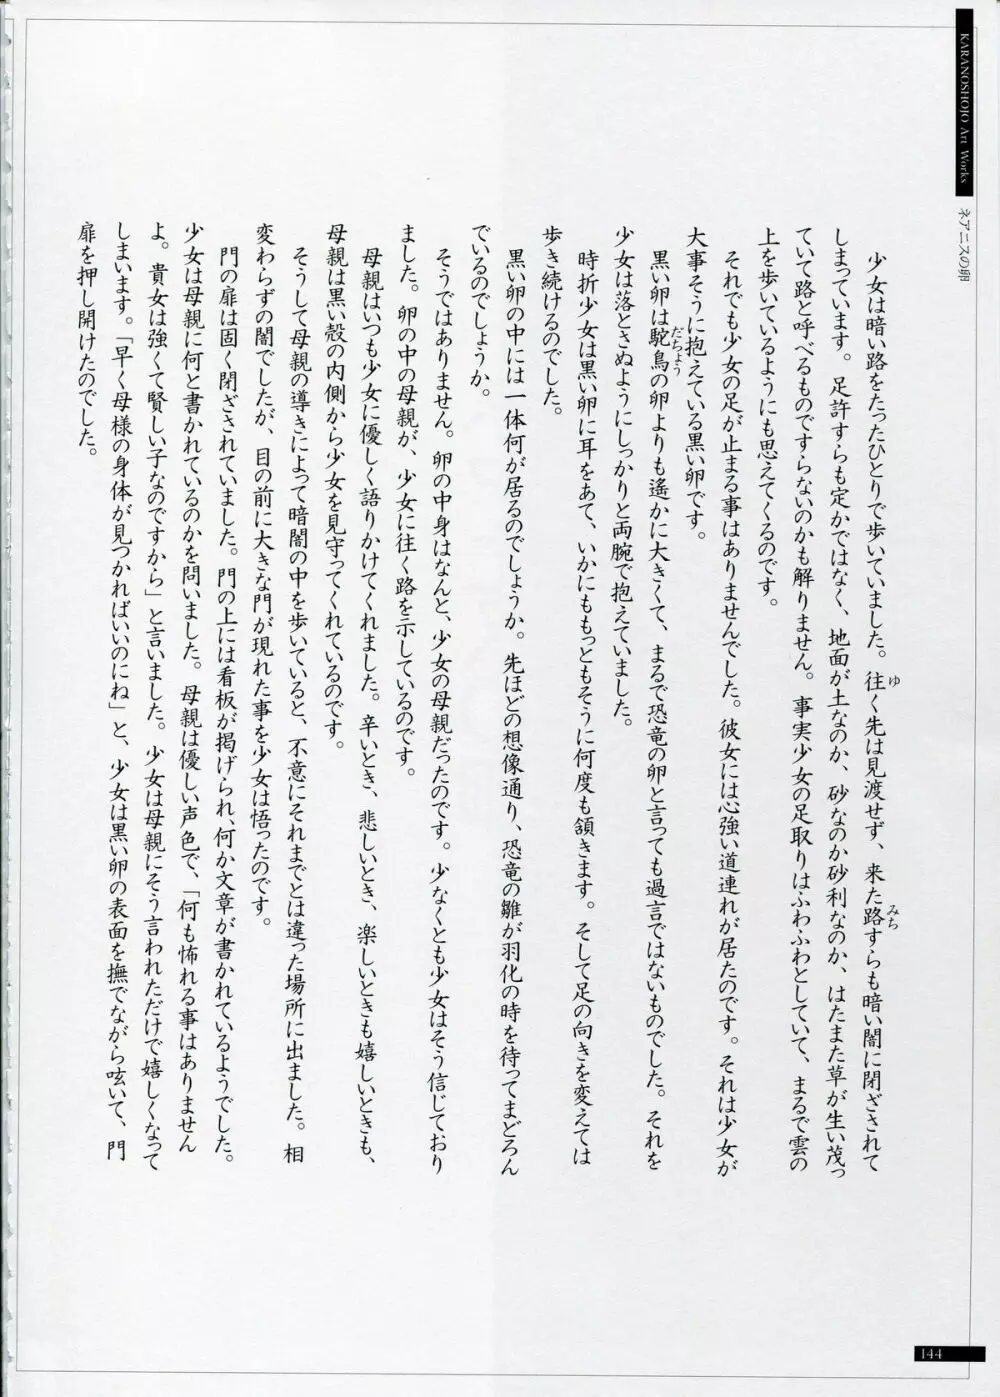 KARANOSHOJO Art Works
ネアニスの卵
少女は暗い路をたったひとりで歩いていました。往く先は見渡せず、来た路すらも暗い闇に閉ざされて
ゆ
みち
しまっています。足許すらも定かではなく、地面が土なのか、砂なのか砂利なのか、はたまた草が生い茂っ
ていて路と呼べるものですらないのかも解りません。事実少女の足取りはふわふわとしていて、まるで雲の
上を歩いているようにも思えてくるのです。
それでも少女の足が止まる事はありませんでした。彼女には心強い道連れが居たのです。それは少女が
大事そうに抱えている黒い卵です。
黒い卵は駝鳥の卵よりも遙かに大きくて、まるで恐竜の卵と言っても過言ではないものでした。それを
だちょう
少女は落とさぬようにしっかりと両腕で抱えていました。
時折少女は黒い卵に耳をあて、いかにももっともそうに何度も頷きます。そして足の向きを変えては
歩き続けるのでした。
黒い卵の中には一体何が居るのでしょうか。先ほどの想像通り、恐竜の雛が羽化の時を待ってまどろん
でいるのでしょうか。
そうではありません。卵の中身はなんと、少女の母親だったのです。少なくとも少女はそう信じており
ました。卵の中の母親が、少女に往く路を示しているのです。
母親はいつも少女に優しく語りかけてくれました。辛いとき、悲しいとき、楽しいときも嬉しいときも、
母親は黒い殻の内側から少女を見守ってくれているのです。
そうして母親の導きによって暗闇の中を歩いていると、不意にそれまでとは違った場所に出ました。相
変わらずの闇でしたが、目の前に大きな門が現れた事を少女は悟ったのです。
門の扉は固く閉ざされていました。門の上には看板が掲げられ、何か文章が書かれているようでした。
少女は母親に何と書かれているのかを問いました。母親は優しい声色で、「何も怖れる事はありません
よ。貴女は強くて賢しい子なのですから」と言いました。少女は母親にそう言われただけで嬉しくなって
しまいます。「早く母様の身体が見つかればいいのにね」と、少女は黒い卵の表面を撫でながら呟いて、門
扉を押し開けたのでした。
144